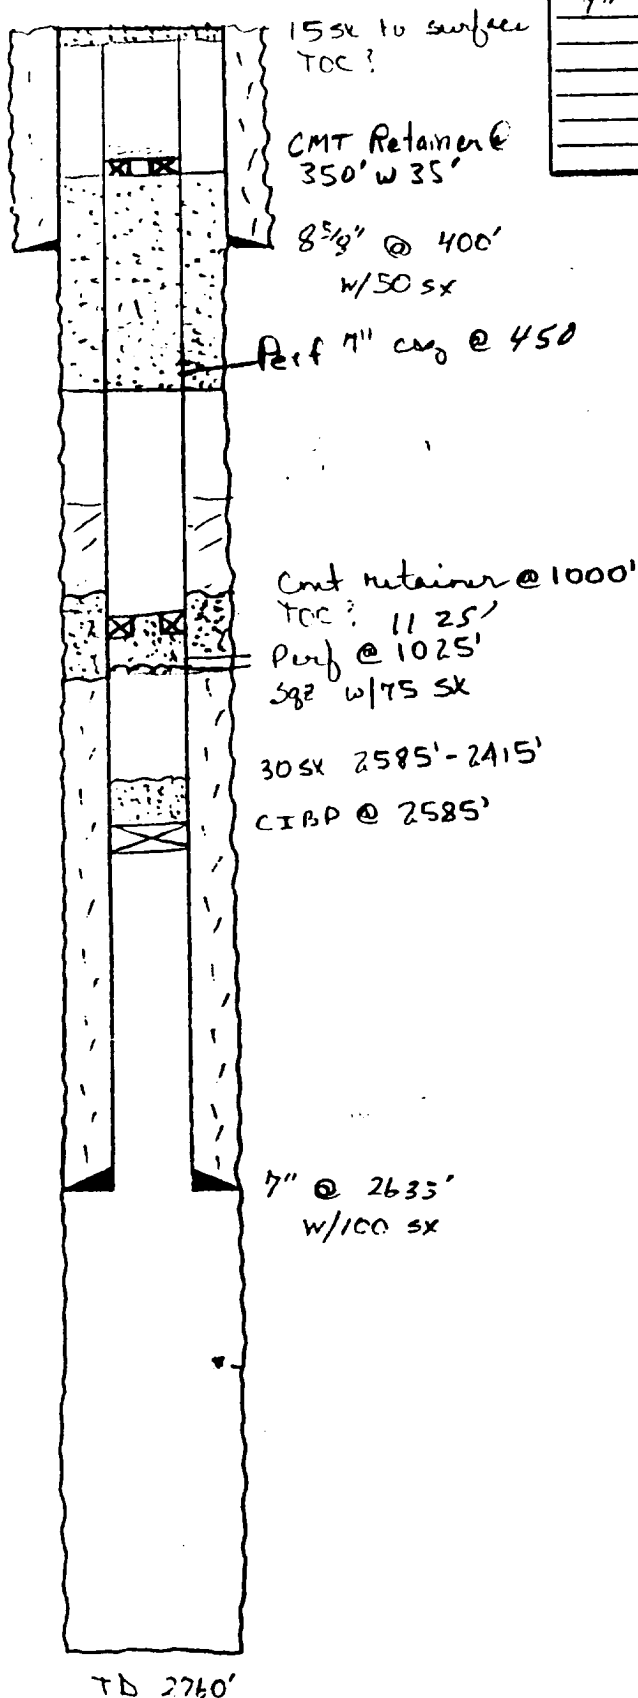 7"
15 sx to surface
TOC?
CMT Retainer @
350' w 35'
8 5/8" @ 400'
w/50 sx
Perf 7" csg @ 450
Cmt retainer @ 1000'
TOC? 1125'
Perf @ 1025'
Sqz w/75 sx
30 sx 2585'-2415'
CIBP @ 2585'
7" @ 2635'
w/100 sx
TD 2760'